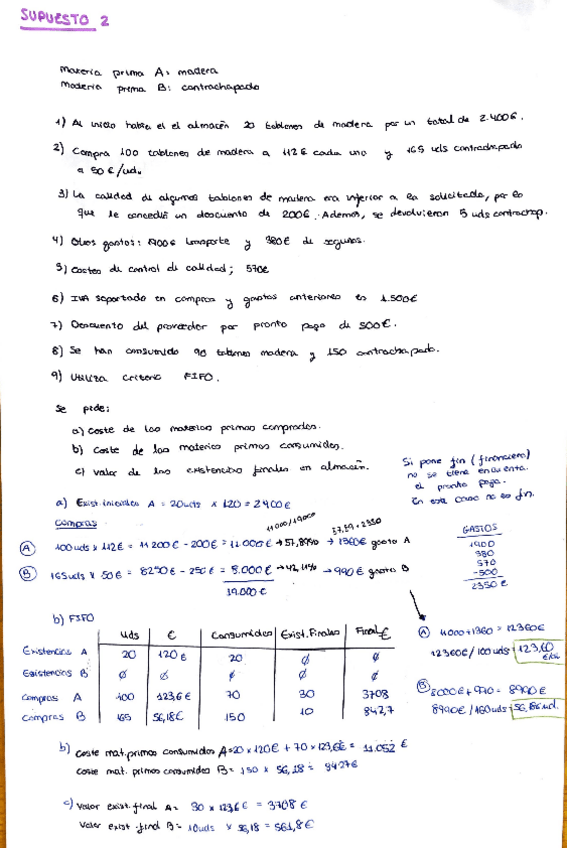 SUPUESTO 2
Materia prima A: madera
Materia prima B: contrachapado
1) Al inicio había el el almacén 20 tablones de madera por un total de 2.400€.
2) Compra 100 tablones de madera a 112€ cada uno y 165 uds contrachapado
a 50€/ud.
3) La calidad de algunos tablones de madera era inferior a la solicitada, por lo
que le concedió un descuento de 200€. Además, se devolvieron 5 uds contrachap.
4) Otros gastos: 1900€ transporte y 380€ de seguros.
5) Costes de control de calidad; 570€
6) IVA soportado en compras y gastos anteriores es 1.500€
7) Descuento del proveedor por pronto pago de 500€.
8) Se han consumido 90 tablones madera y 150 contrachapado.
9) Utiliza criterio FIFO.
Se pide:
a) Coste de las materias primas compradas.
b) Coste de las materias primas consumidas.
c) Valor de las existencias finales en almacén.
Si pone fin (financiero)
no se tiene en cuenta.
el pronto pago.
En este caso no es fin.
a) Exist. iniciales A = 20uds x 120 = 2400€
Compras
11000/19000
57,89 × 2350
A 100 uds x 112€ = 11200€ - 200€ = 11.000€ → 57,89% → 1360€ gasto A
B 165uds x 50€ = 8250€ - 250€ = 8.000€ → 42,11% → 990€ gasto B
19.000€
GASTOS
1900
380
570
-500
2350€
A 11000+1360 = 12360€
12360€/100 uds = 123,60 €/ud
B 8000€ + 990 = 8990€
8990€/160uds = 56,18€ud.
b) FIFO
Uds € Consumidas Exist. Finales Final €
Existencias A 20 120€ 20 ∅ ∅
Existencias B ∅ ∅ ∅ ∅ ∅
Compras A 100 123,6€ 70 30 3708
Compras B 165 56,18€ 150 10 842,7
b) Coste mat. primas consumidas A = 20 x 120€ + 70 x 123,6€ = 11.052 €
Coste mat. primas consumidas B = 150 x 56,18 = 8427€
c) Valor exist. final A = 30 x 123,6€ = 3708€
Valor exist. final B = 10uds x 56,18 = 561,8€